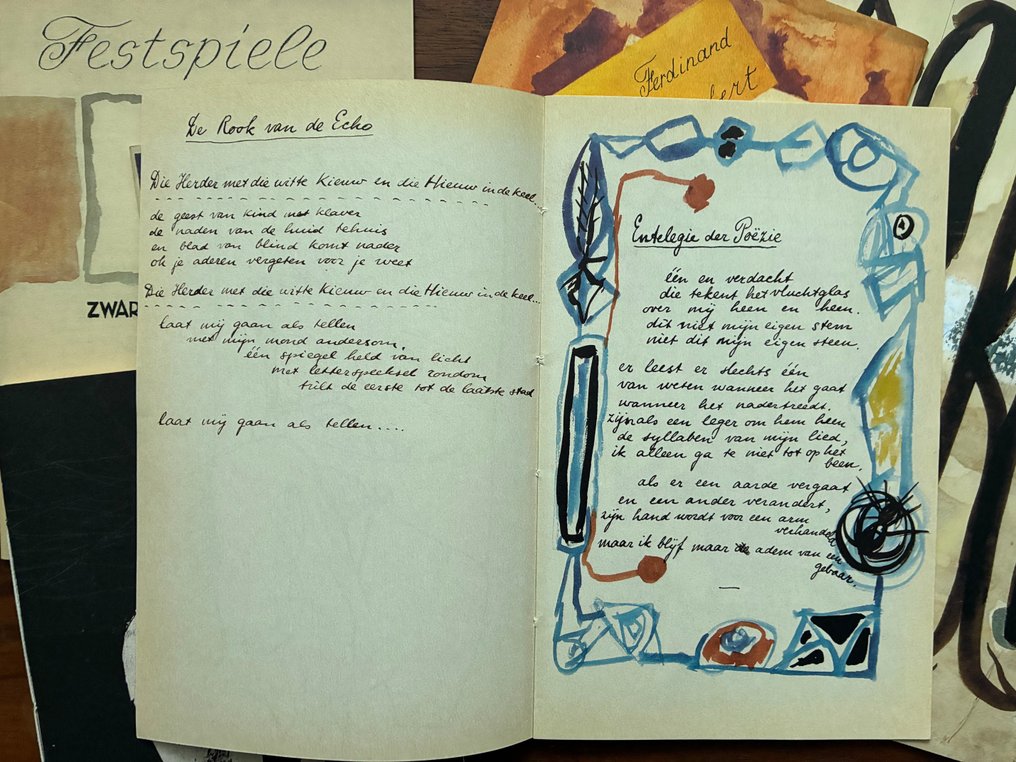 Festspiele
Ferdinand
bert
ZWAR
De Rook van de Echo
Die Herder met die witte Kieuw en die Hieuw in de keel...
de geest van kind met klaver
de naden van de huid tehuis
en blad van blind komt nader
oh je aderen vergeten voor je weet
Die Herder met die witte Kieuw en die Hieuw in de keel...
laat mij gaan als tellen
met mijn mond andersom,
één spiegel held van licht
met letterspeeksel rondom
tilt de eerste tot de laatste stad
laat mij gaan als tellen....
Entelegie der Poëzie
één en verdacht
die tekent het vluchtglas
over mij heen en heen.
dit niet mijn eigen stem
niet dit mijn eigen steen.
er leest er slechts één
van weten wanneer het gaat
wanneer het nadertreedt.
zijn als een leger om hem heen
de syllaben van mijn lied,
ik alleen ga te niet tot op het
been.
als er een aarde vergaat
en een ander verandert,
zijn hand wordt voor een arm
verhandeld
maar ik blijf maar de adem van een
gebaar.